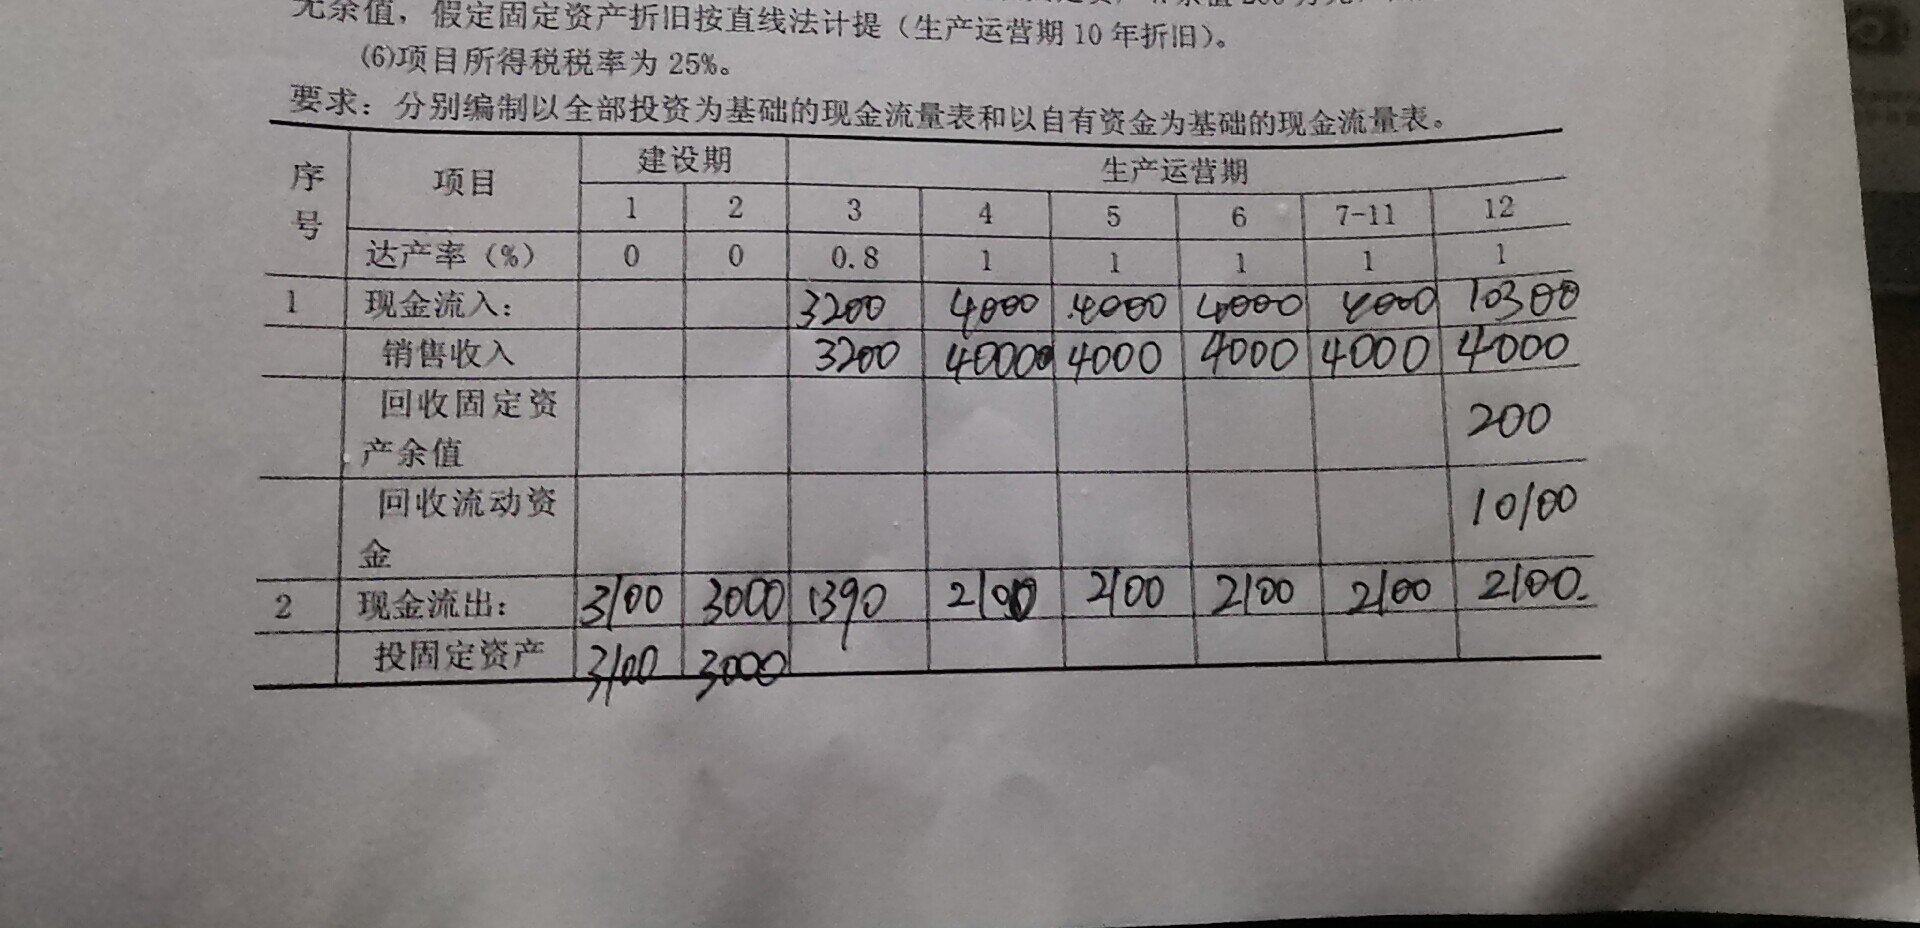 无余值，假定固定资产折旧按直线法计提（生产运营期10年折旧）。
(6)项目所得税税率为25%。
要求：分别编制以全部投资为基础的现金流量表和以自有资金为基础的现金流量表。
序号 项目 建设期 生产运营期
1 2 3 4 5 6 7-11 12
达产率（%） 0 0 0.8 1 1 1 1 1
1 现金流入： 3200 4000 4000 4000 4000 10300
销售收入 3200 4000 4000 4000 4000 4000
回收固定资产余值 200
回收流动资金 10100
2 现金流出： 3100 3000 1390 2100 2100 2100 2100 2100
投固定资产 3100 3000